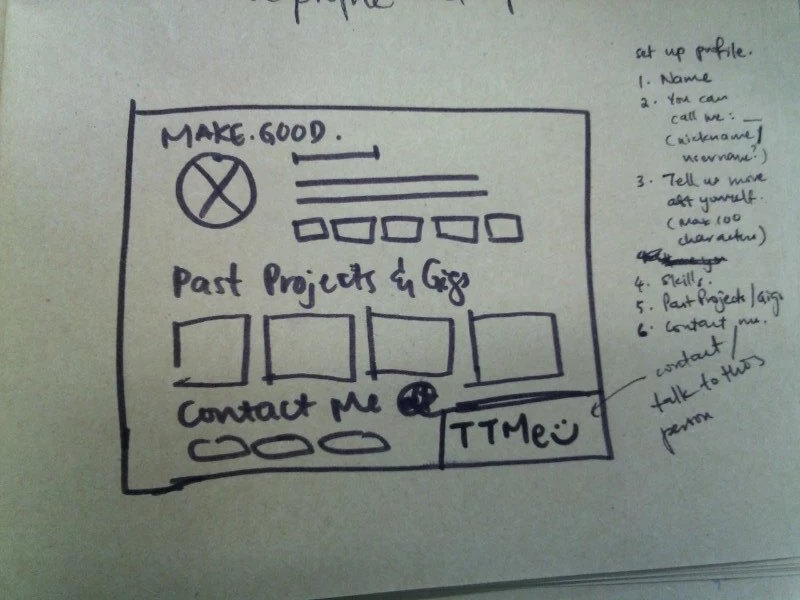 profile
MAKE.GOOD.
Past Projects & Gigs
Contact Me
TTMe
set up profile.
1. Name
2. You can
call me: __
(nickname/
username?)
3. Tell us more
abt yourself.
(Max 100
characters)
4. Skills.
5. Past Projects/Gigs
6. Contact me.
contact/
talk to this
person